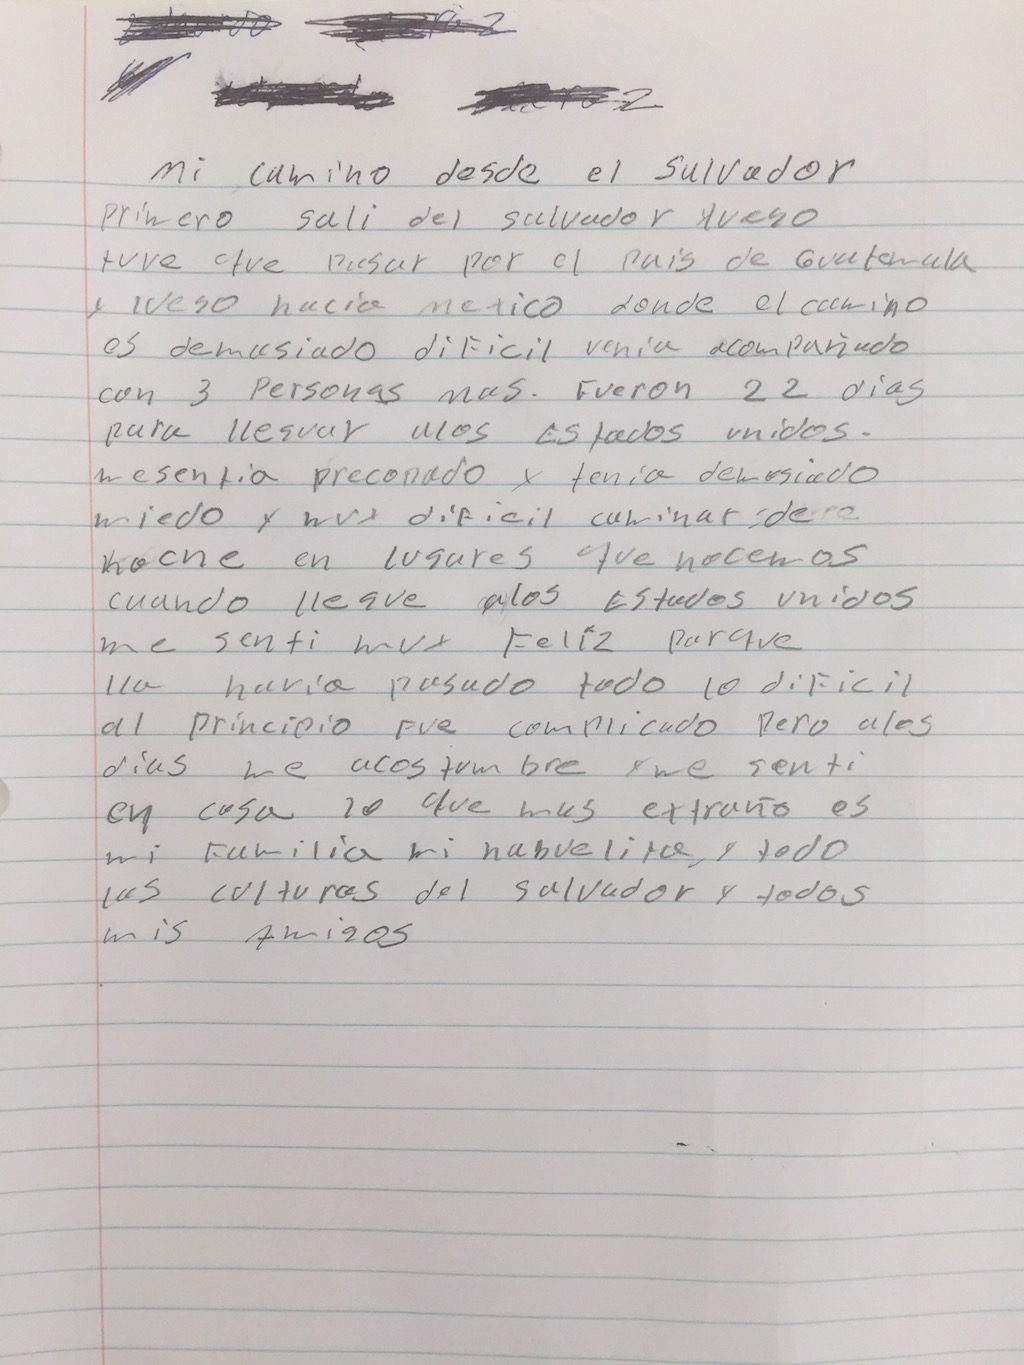 Mi camino desde el Salvador
Primero sali del salvador
tuve que pasar por el pais de Guatemala
y lueso hacia Mexico donde el camino
es demasiado dificil venia acompañado
con 3 Personas mas. Fueron 22 dias
para lleguar alos Estados unidos.
mesentia precopado y tenia demasiado
miedo y muy dificil caminar de
noche en lugares que nocemos
cuando llegue alos Estados unidos
me senti muy Feliz parque
lla havia pasado todo lo dificil
al principio fue complicado pero alos
dias me acostumbre y me senti
en casa lo que mas extraño es
mi Familia mi habuelita, y todo
las culturas del salvador y todos
mis Amigos